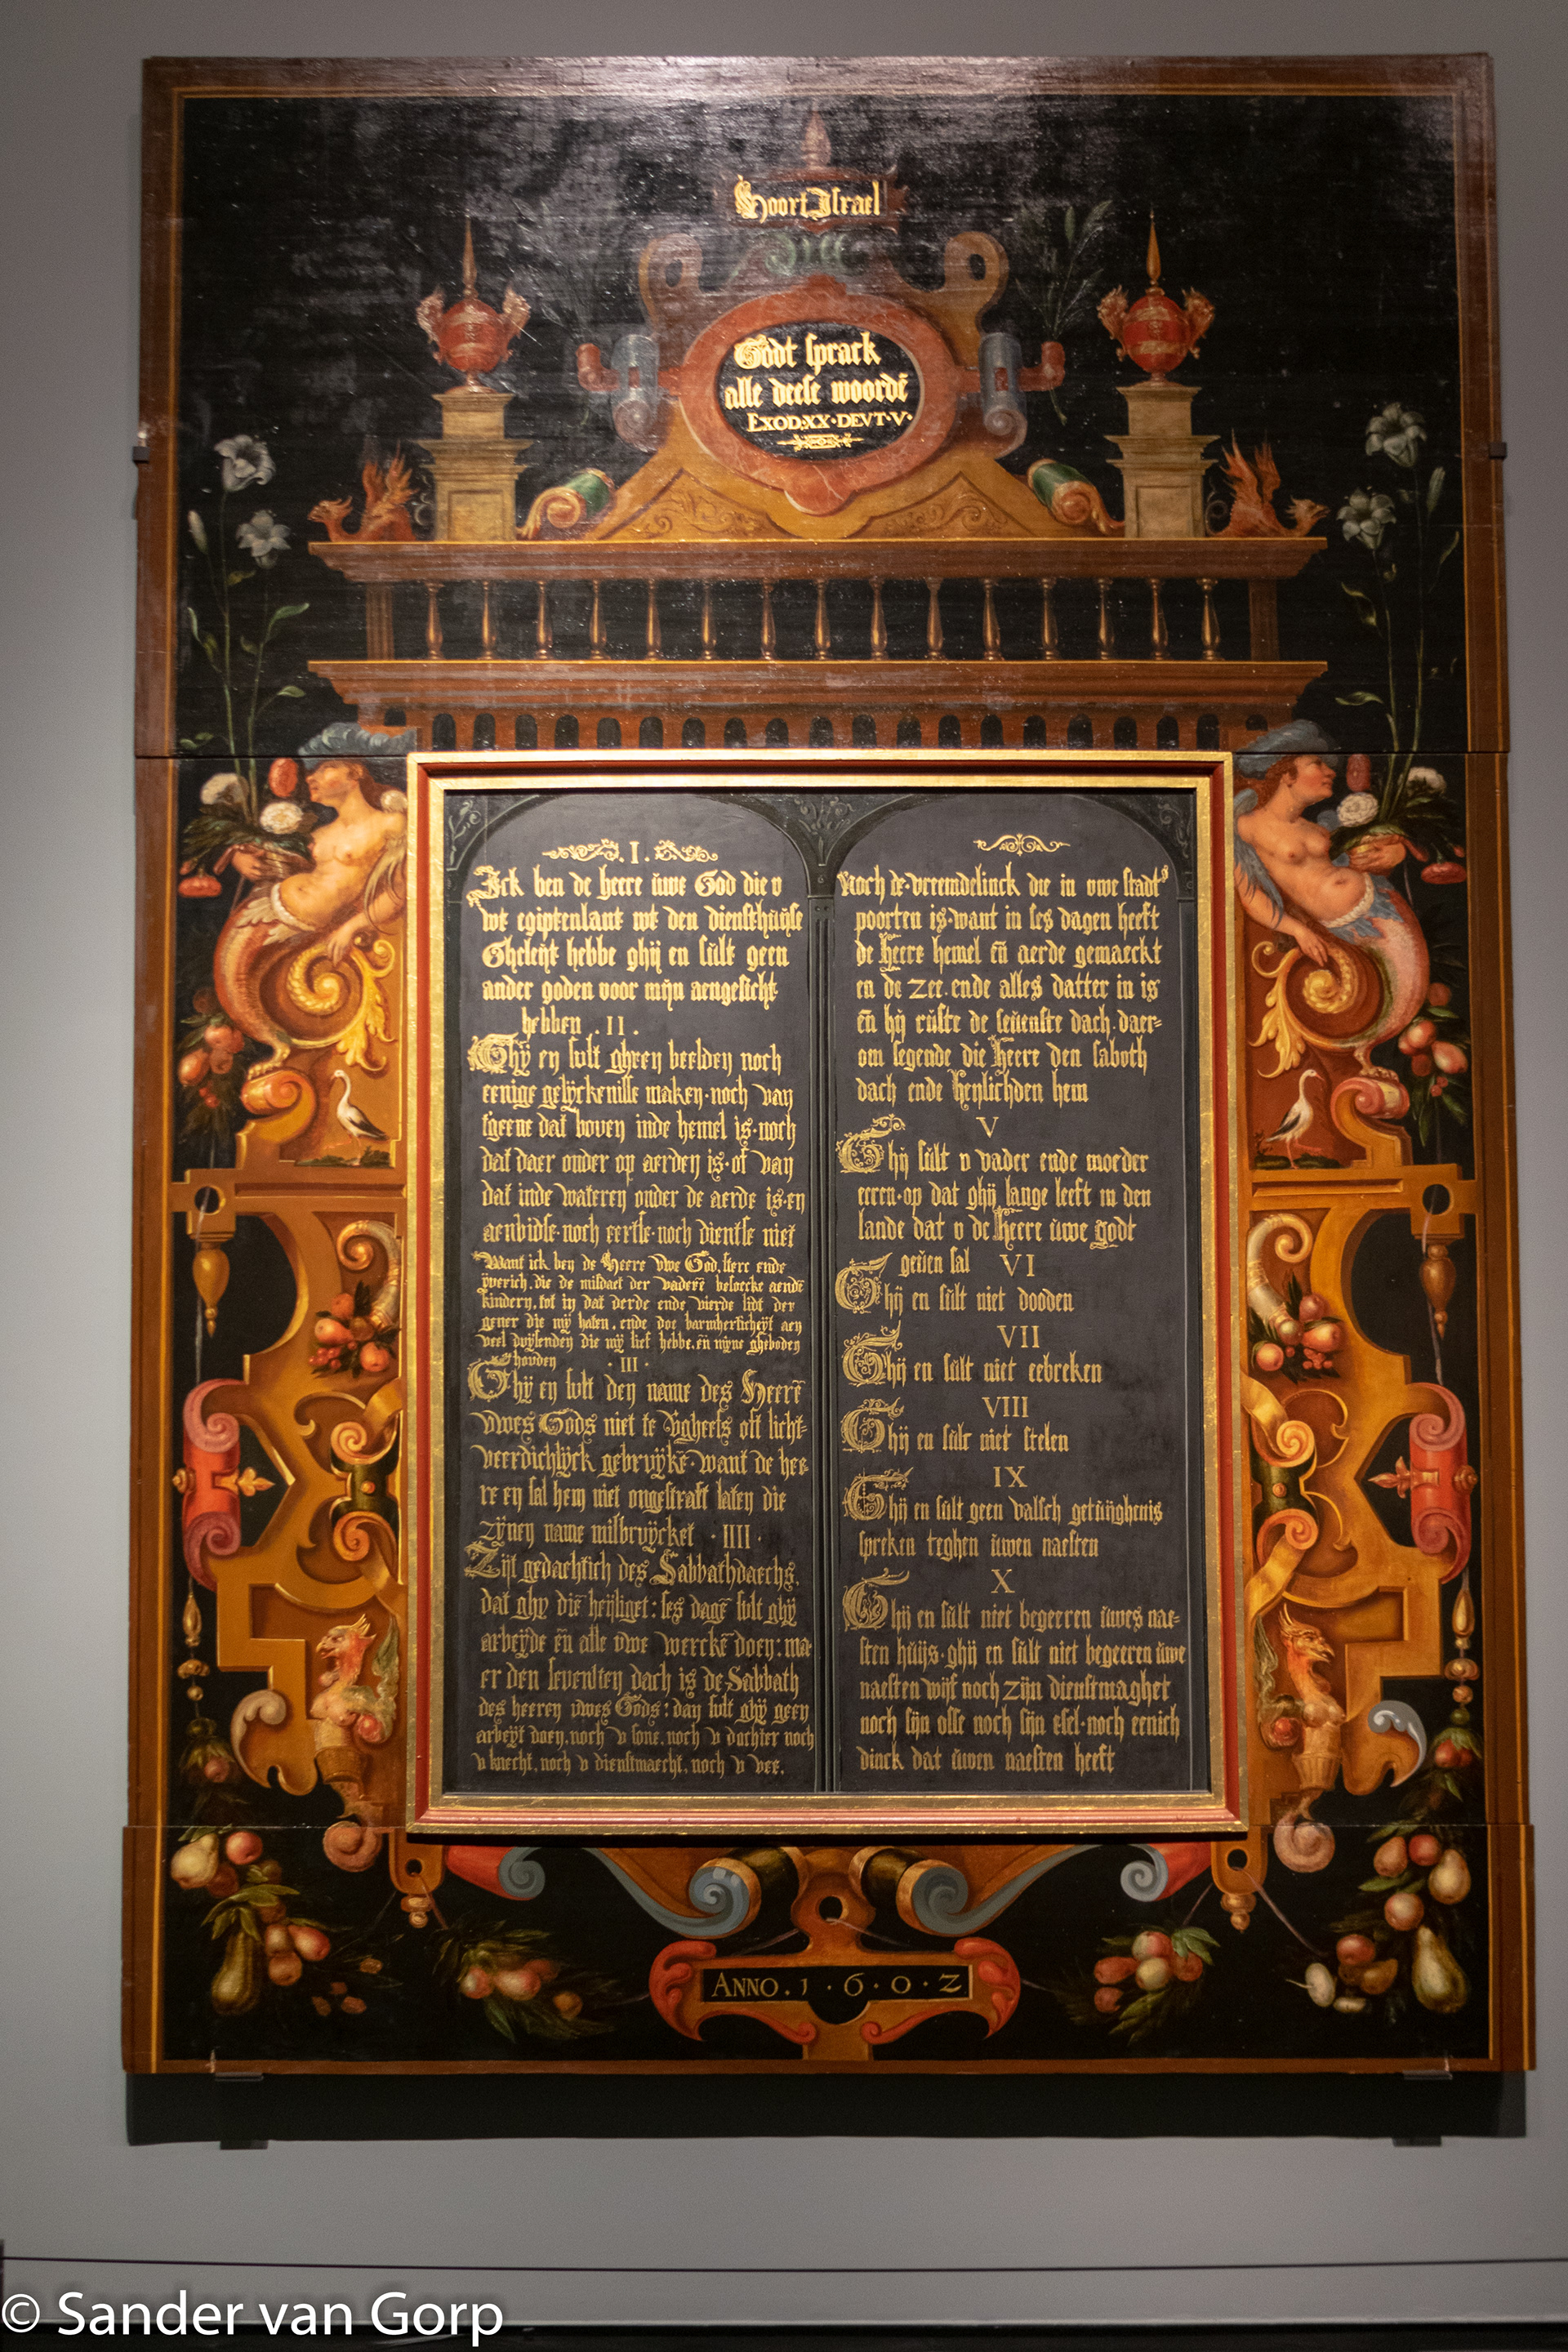 Hoort Israel
Godt sprack
alle deese woordē
EXOD·XX·DEVT·V·
.I.
Ick ben de heere ůwe God die v
wt egiptenlant wt den diensthuÿse
Gheleÿt hebbe ghij en sůlt geen
ander goden voor mijn aengesicht
hebben .II.
Ghÿ en sult gheen beelden noch
eenige gelÿckenisse maken·noch van
tgeene dat boven inde hemel is·noch
dat daer onder op aerden is·of van
dat inde wateren onder de aerde is·en
aenbidse·noch eertse·noch dientse niet
Want ick ben de Heere vwe God, sterc ende
ÿverich, die de misdaet der vaderē besoecke aende
kindern, tot in dat derde ende vierde lidt der
gener die mÿ haten, ende doe barmherticheÿt aen
veel duÿsenden die mÿ lief hebbe, eñ mÿne gheboden
houden · III ·
Ghÿ en sult den name des Heerē
vwes Gods niet te vgheefs oft licht-
veerdichlÿck gebruÿkē·want de hee-
re en sal hem niet ongestraft laten die
zÿnen name misbruÿcket · IIII ·
Zijt gedachtich des Sabbathdaechs,
dat ghy diē heÿliget: ses dagē sult ghÿ
arbeÿde eñ alle vwe werckē doen: ma-
er den sevensten dach is de Sabbath
des heeren vwes Gods: dan sult ghÿ geen
arbeÿt doen, noch v sone, noch v dochter noch
v knecht, noch v dienstmaecht, noch v vee,
noch de·vreemdelinck die in vwe stadts
poorten is·want in ses dagen heeft
de Heere hemel eñ aerde gemaeckt
en de zee·ende alles datter in is
eñ hÿ růste de seůenste dach·daer-
om segende die Heere den saboth
dach ende heÿlichden hem
V
Ghij sůlt v vader ende moeder
eeren·op dat ghij lange leeft in den
lande dat v de Heere ůwe godt
geůen sal VI
Ghij en sůlt niet dooden
VII
Ghij en sůlt niet eebreken
VIII
Ghij en sůlt niet stelen
IX
Ghij en sůlt geen valsch getůÿghenis
spreken teghen ůwen naesten
X
Ghij en sůlt niet begeeren ůwes nae-
sten hůijs·ghij en sůlt niet begeeren ůwe
naesten wijf noch zijn dienstmaghet
noch sijn osse noch sijn esel·noch eenich
dinck dat ůwen naesten heeft
ANNO.1·6·0·2
© Sander van Gorp